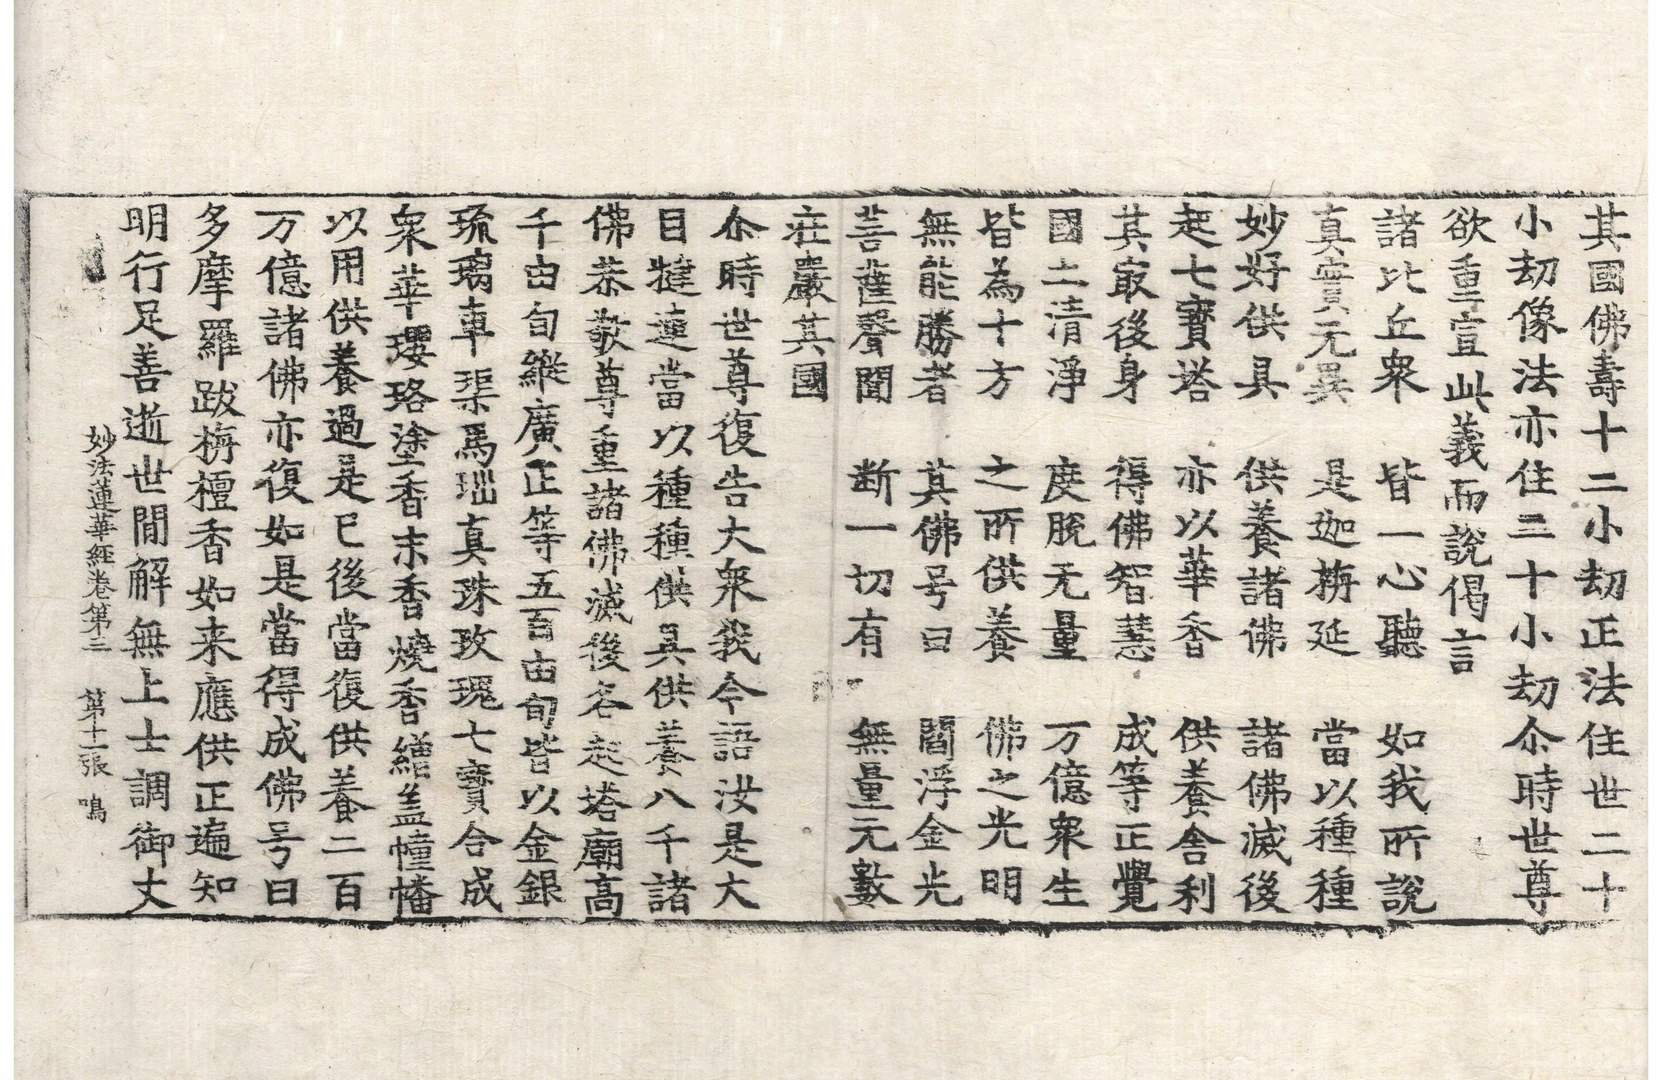 其國佛壽十二小劫正法住世二十
小劫像法亦住二十小劫尒時世尊
欲重宣此義而說偈言
諸比丘衆　皆一心聽　如我所說
真實无異　是迦旃延　當以種種
妙好供具　供養諸佛　諸佛滅後
起七寶塔　亦以華香　供養舍利
其㝡後身　得佛智慧　成等正覺
國土清淨　度脫无量　万億衆生
皆為十方　之所供養　佛之光明
無能勝者　其佛号曰　閻浮金光
菩薩聲聞　断一切有　無量无數
莊嚴其國
尒時世尊復告大衆我今語汝是大
目揵連當以種種供具供養八千諸
佛恭敬尊重諸佛滅後各起塔廟高
千由旬縱廣正等五百由旬皆以金銀
琉璃車𤦲馬瑙真珠玫瑰七寶合成
衆華瓔珞塗香末香燒香繒盖幢幡
以用供養過是已後當復供養二百
万億諸佛亦復如是當得成佛号曰
多摩羅跋旃檀香如来應供正遍知
明行足善逝世間解無上士調御丈
妙法蓮華經卷第三　第十一張　鳴